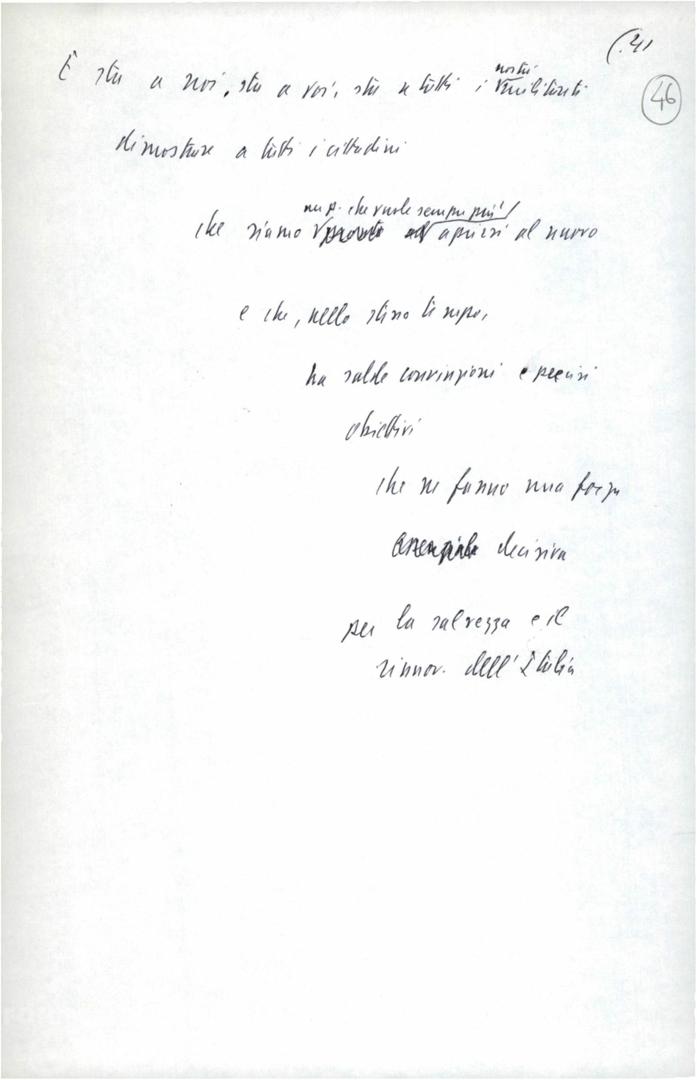 41
46
E sta a noi, sta a voi, sta a tutti i nostri militanti
dimostrare a tutti i cittadini
un p. che vuole sempre più
che siamo pronti ad aprirsi al nuovo
e che, nello stesso tempo,
ha salde convinzioni e precisi
obiettivi
che ne fanno una forza
essenziale decisiva
per la salvezza e il
rinnov. dell'Italia